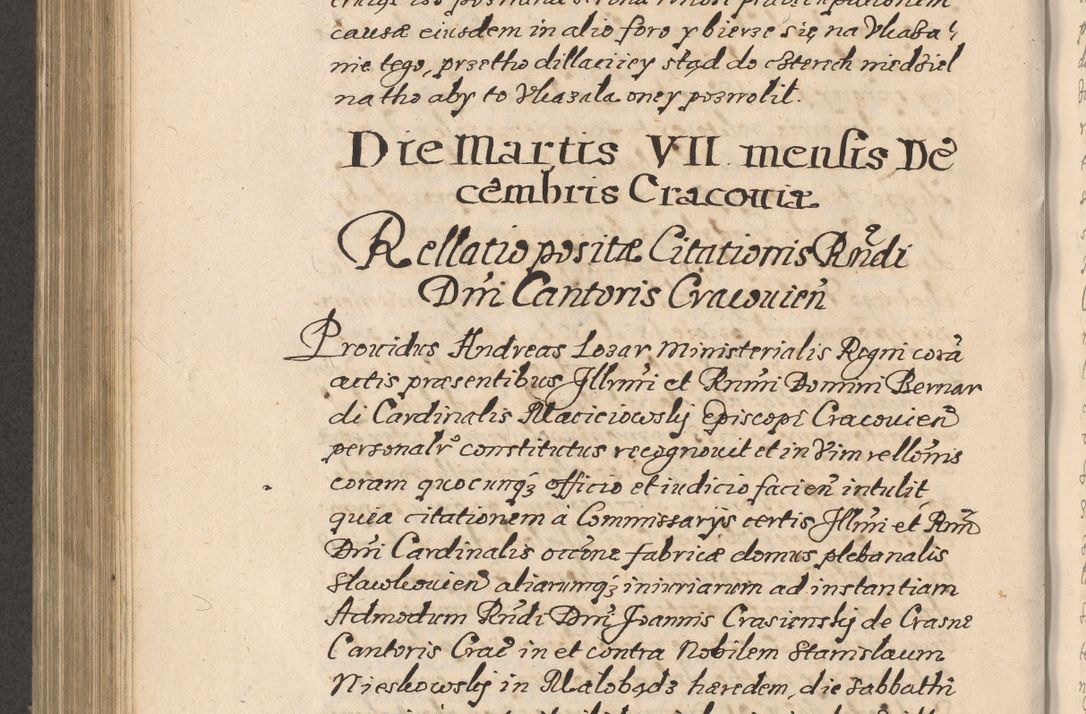 causæ eiusdem in alio foro y bierze się na Vkaza-
nie tego, przetho dillaciiey stąd do cztench niedziel
na tho aby to Vkazala oney pozwolil.
Die Martis VII mensis De
cembris Cracoviæ
Rellatio positæ Citationis Rñdi
Dñi Cantoris Cracouieñ
Prouidus Andreas Lozar Ministerialis Regni corã
actis præsentibus Jllmi et Rnmi Domini Bernar
di Cardinalis Maciciowskij Episcopi Cracouieñ
personalr constitutus recognouit et in Vim relloñis
coram quocunqȝ officio et iudicio facieñ intulit
quia citationem à Commissarijs certis Jllmi et Rmi
Dñi Cardinalis occõne fabricæ domus plebanalis
Slawkouieñ aliarumqȝ iniuriarum ad instantiam
Admodum Rñdi Dñi Joannis Crasienskij de Crasne
Cantoris Crac in et contra Nobilem Stanislaum
Nieskowskij in Malobądz hæredem, die Sabbathi